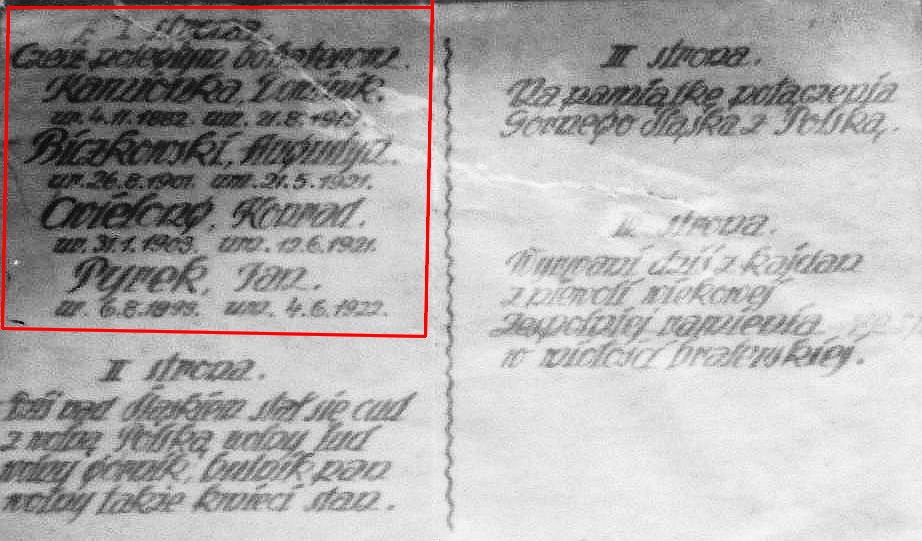 I strona.
Cześć poległym bohaterom.
Kamionka, Dominik.
ur. 4.11.1882. um. 21.8.1919.
Biczkowski, Augustyn.
ur. 26.8.1901. um. 21.5.1921.
Cmielong, Konrad.
ur. 31.1.1903. um. 12.6.1921.
Pyrek, Jan.
ur. 6.8.1899. um. 4.6.1922.
II strona.
Dziś nad śląskiem stał się cud
z wolną Polską wolny lud
wolny górnik, hutnik pan
wolny także kmieci stan.
III strona.
Na pamiątkę połączenia
Gornego śląska z Polską.
strona.
Wyrwani dziś z kajdan
z niewoli wiekowej
zespolmy ramienia
w miłości braterskiej.